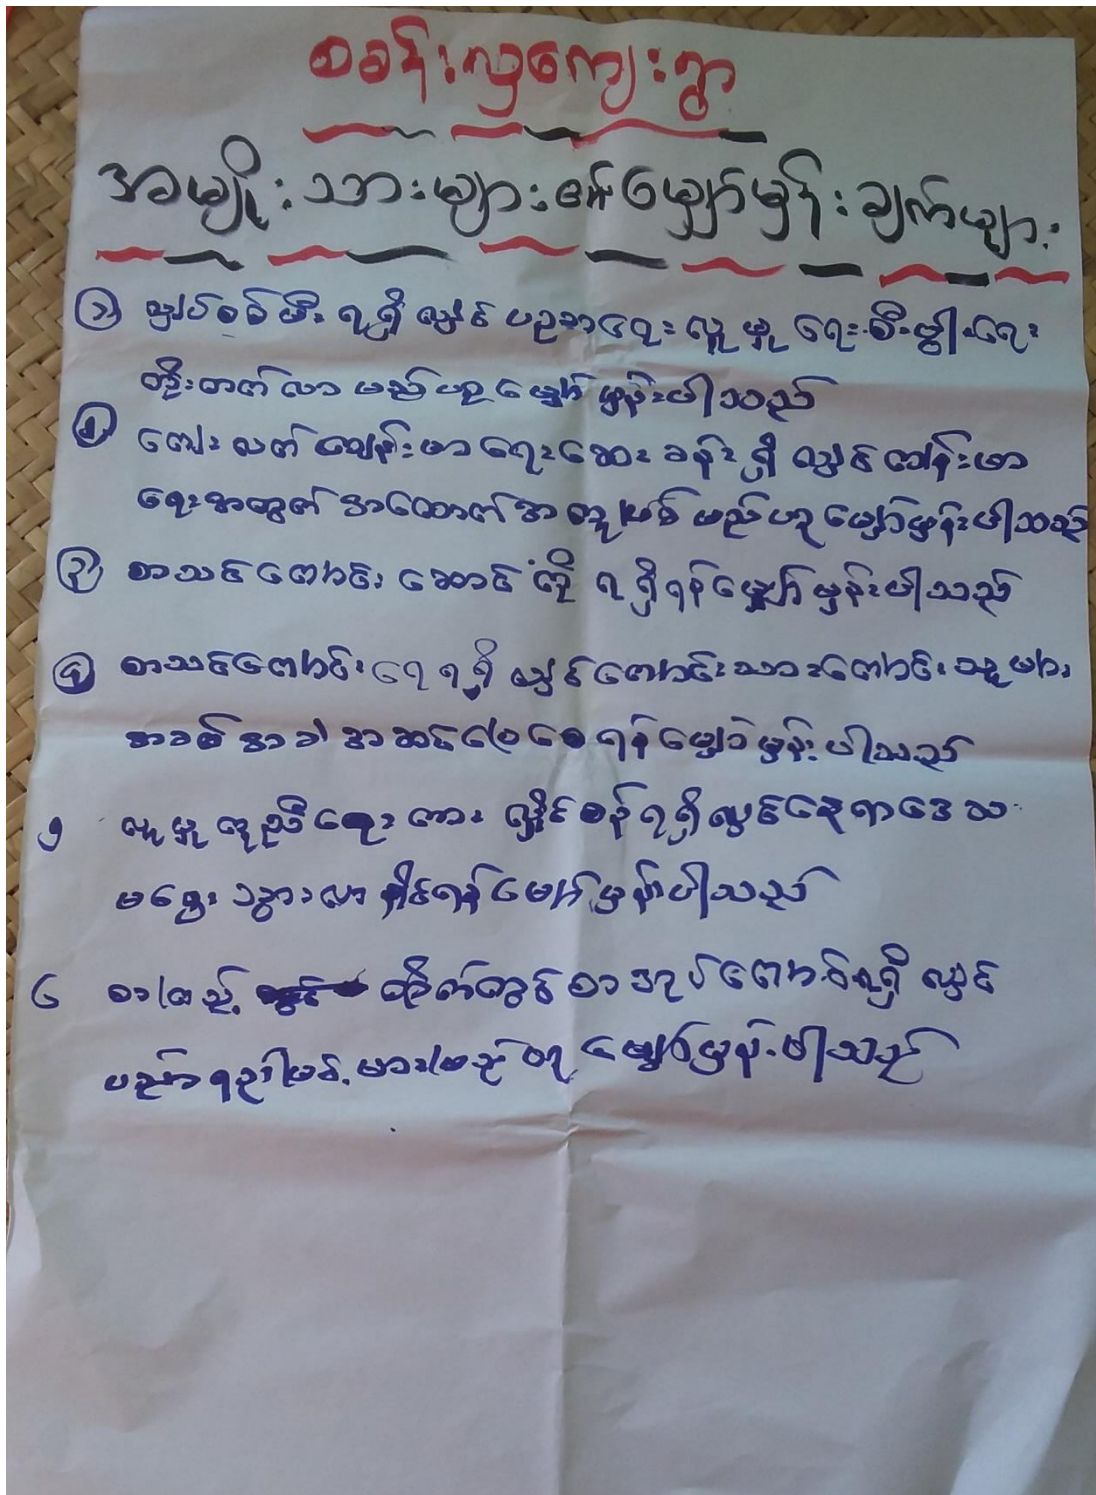 စခန်းလှကျေးရွာ
အမျိုးသားများ၏မျှော်မှန်းချက်များ
၁ လျှပ်စစ်မီး ရရှိလျှင် ပညာရေး လူမှုရေး စီးပွါးရေး
တိုးတက်လာမည်ဟု မျှော်မှန်းပါသည်
၂ ကျေးလက်ကျန်းမာရေးဆေးခန်းရှိလျှင် ကျန်းမာ
ရေးအတွက် အထောက်အကူဖြစ်မည်ဟု မျှော်မှန်းပါသည်
၃ စာသင်ကျောင်းဆောင်ကို ရရှိရန်မျှော်မှန်းပါသည်
၄ စာသင်ကျောင်းရေရရှိလျှင်ကျောင်းသားကျောင်းသူများ
အခက်အခဲ အဆင်ပြေစေရန် မျှော်မှန်းပါသည်
၅ လူမှုကူညီရေးကား လှိုင်စင်ရရှိလျှင်နေရာဒေသ
မရွေး သွားလာနိုင်ရန်မျှော်မှန်းပါသည်
၆ စာကြည့် တိုက်တွင်စာအုပ်ကောင်းရရှိလျှင်
ပညာရည်မြင့်မားမည်ဟု မျှော်မှန်းပါသည်